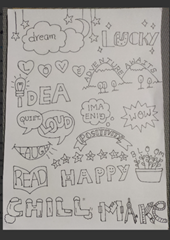 dream
LUCKY
LOVE
ADVENTURE AWAITS
IDEA
IMA GENIUS
WOW
QUIET
LOUD
POSITIVITY
LAUGH
READ
HAPPY
CHILL
MAKE